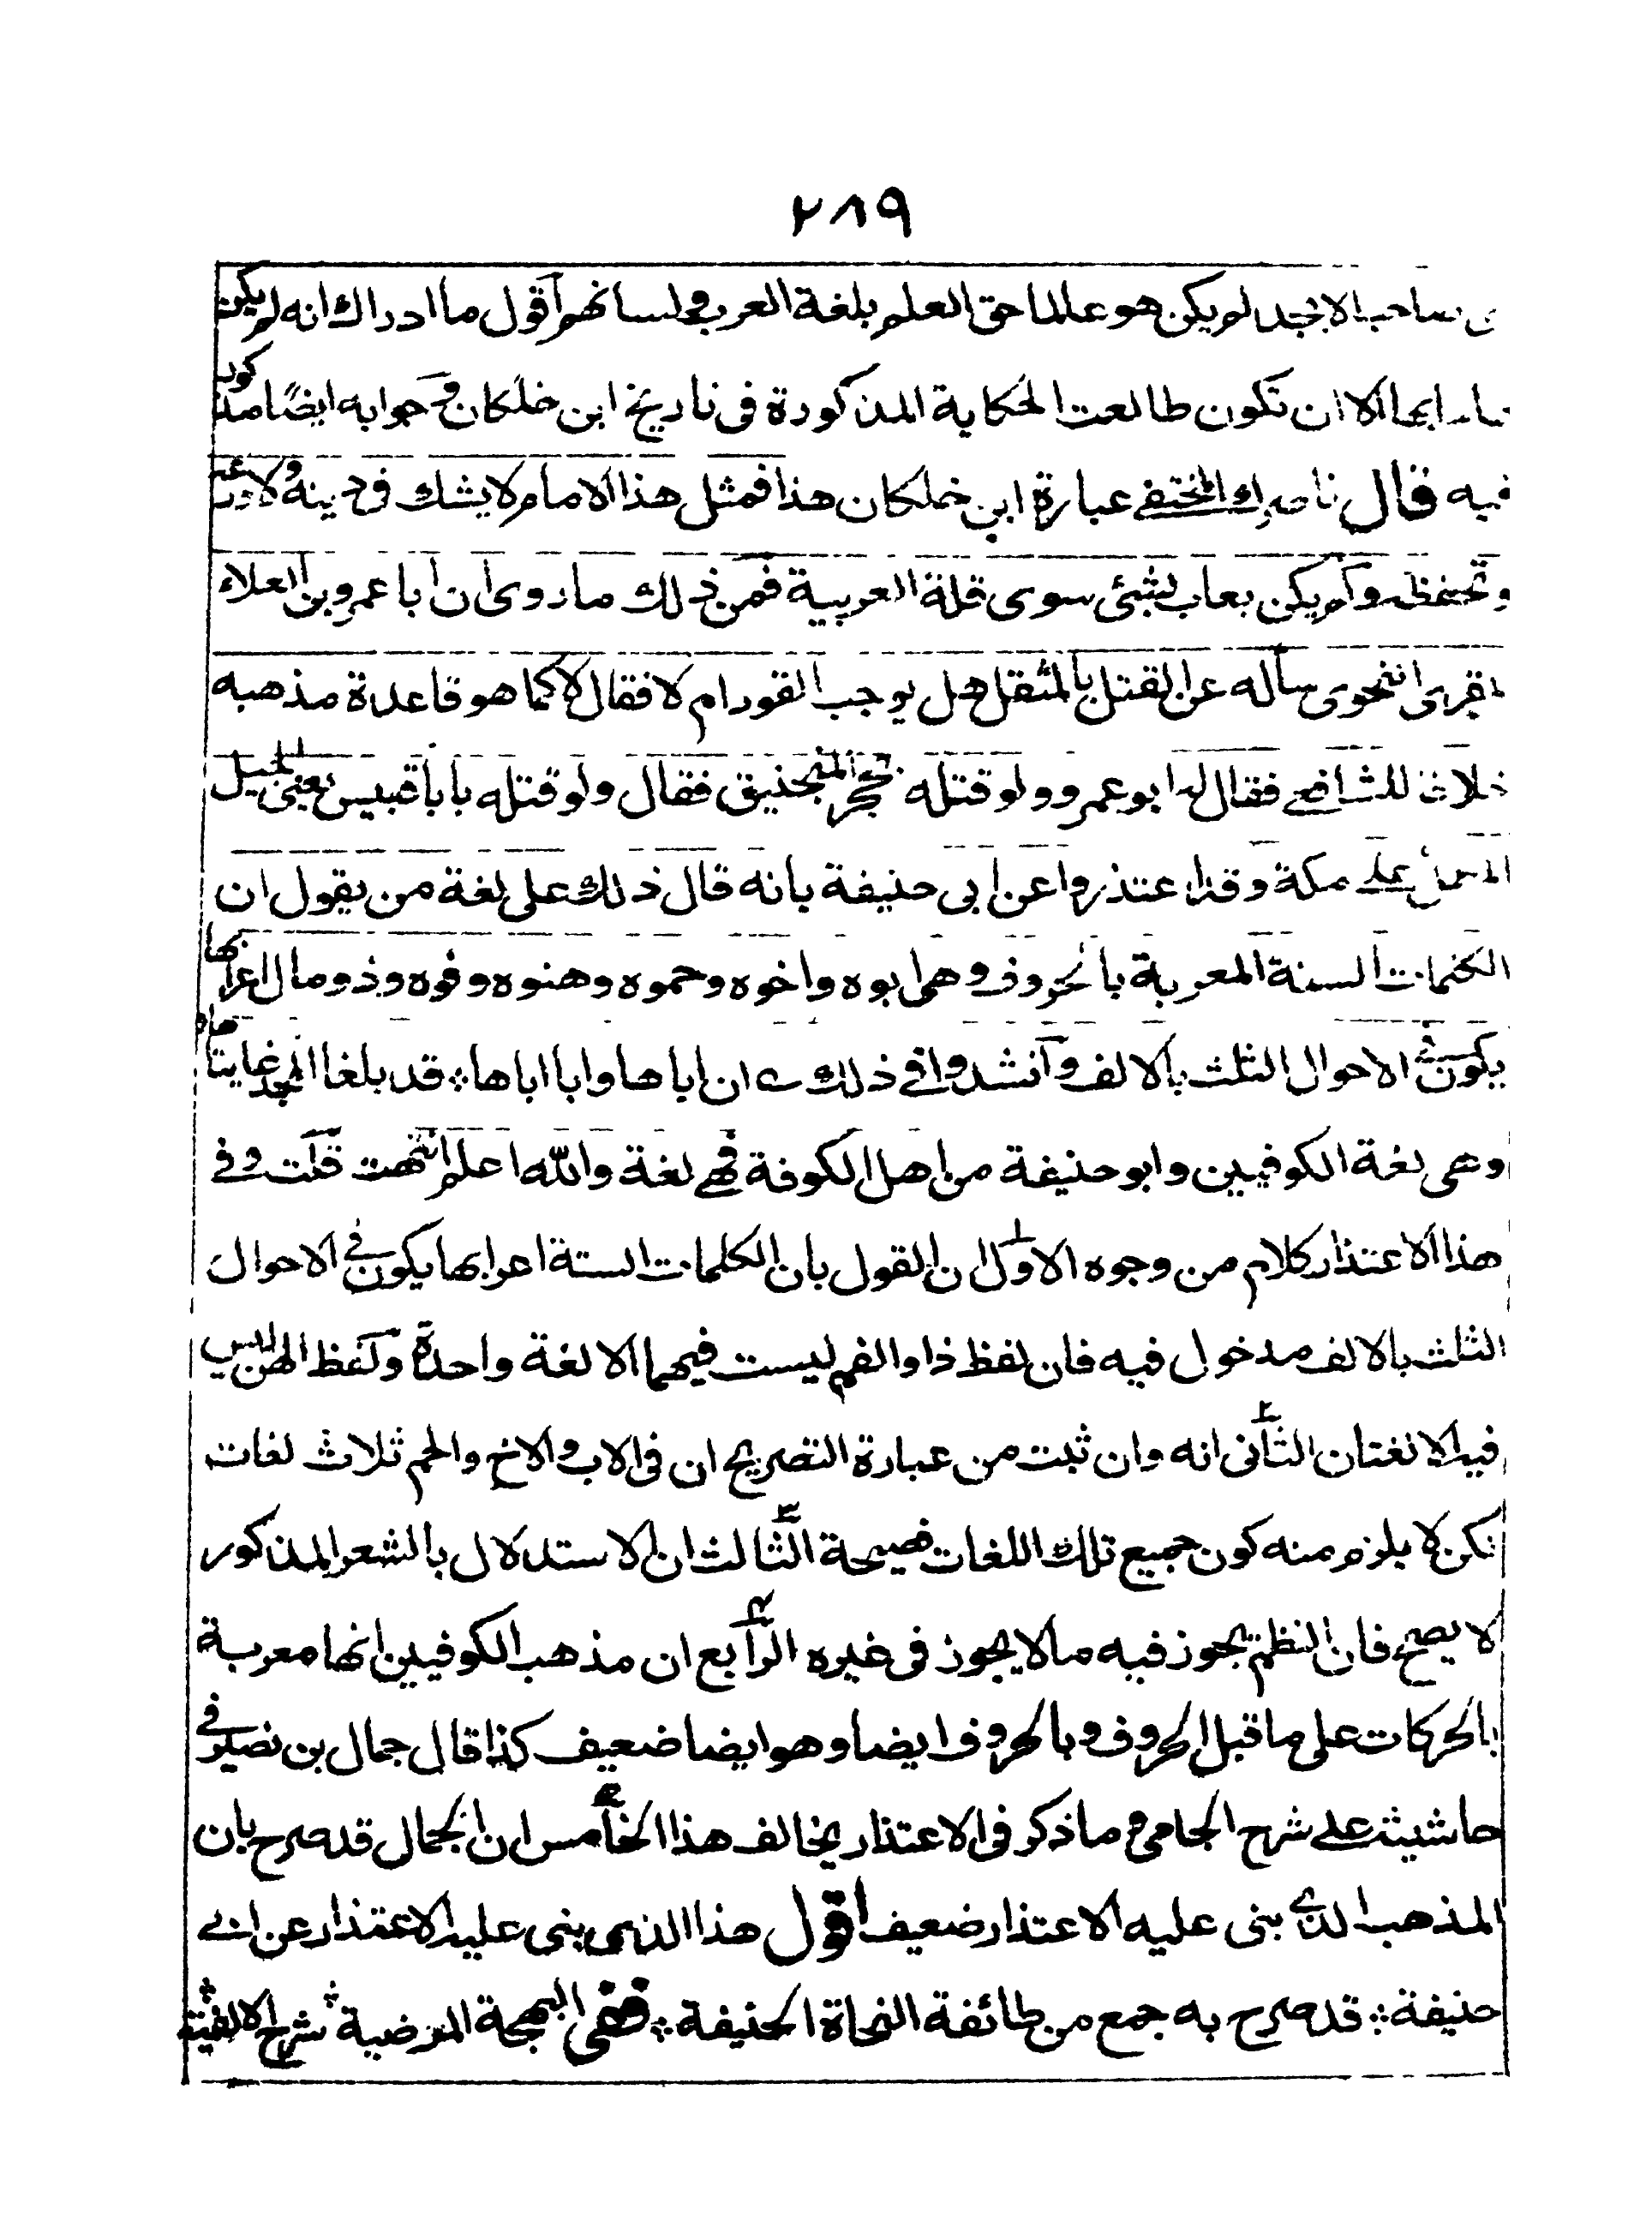 ٢٨٩
صاحب الابجد لم يكن هو عالما حق العلم بلغة العرب ولسانهم اقول ما ادراك انه لم يكن
الا ان تكون طالعت الحكاية المذكورة فى تاريخ ابن خلكان وجوابه ايضًا مذكور
فيه قال ناصرك المختفے عبارة ابن خلكان هذا فمثل هذا الامام لا يشك فى دينه ولا ورعه
وتحفظه ولم يكن يعاب بشئ سوى قلة العربية فمن ذلك ما روى ان ابا عمرو بن العلاء
المقرى النحوى سأله عن القتل بالمثقل هل يوجب القود ام لا فقال لا كما هو قاعدة مذهبه
خلافا للشافعے فقال له ابو عمرو ولو قتله بحجر المنجنيق فقال ولو قتله بابا قبيس يعنى الجبل
المطل علے مكة وقد اعتذروا عن ابى حنيفة بانه قال ذلك على لغة من يقول ان
الكلمات الستة المعربة بالحروف وهى ابوه واخوه وحموه وهنوه وفوه وذو مال اعرابها
يكون فى الاحوال الثلث بالالف وانشدوا فے ذلك ؎ ان اباها وابا اباها ؞ قد بلغا المجد غايتاها
وهى لغة الكوفيين وابو حنيفة من اهل الكوفة فهے لغة والله اعلم انتهت قلت وفے
هذا الاعتذار كلام من وجوه الاول ان القول بان الكلمات الستة اعرابها يكون فے الاحوال
الثلث بالالف مدخول فيه فان لفظ ذا والفم ليست فيهما الا لغة واحدة ولفظ الهن ليس
فيه الا لغتان الثانى انه وان ثبت من عبارة التصريح ان فى الاب والاخ والحم ثلاث لغات
لكن لا يلزم منه كون جميع تلك اللغات فصيحة الثالث ان الاستدلال بالشعر المذكور
لا يصح فان النظم يجوز فيه ما لا يجوز فى غيره الرابع ان مذهب الكوفيين انها معربة
بالحركات على ما قبل الحروف وبالحروف ايضا وهو ايضا ضعيف كذا قال جمال بن نصير فے
حاشيته علے شرح الجامى وما ذكر فى الاعتذار يخالف هذا الخامس ان الجمال قد صرح بان
المذهب الذے بنى عليه الاعتذار ضعيف اقول هذا الذى بنى عليه الاعتذار عن ابے
حنيفة ؞ قد صرح به جمع من طائفة النحاة الحنيفة ؞ ففى البهجة المرضية شرح الالفية